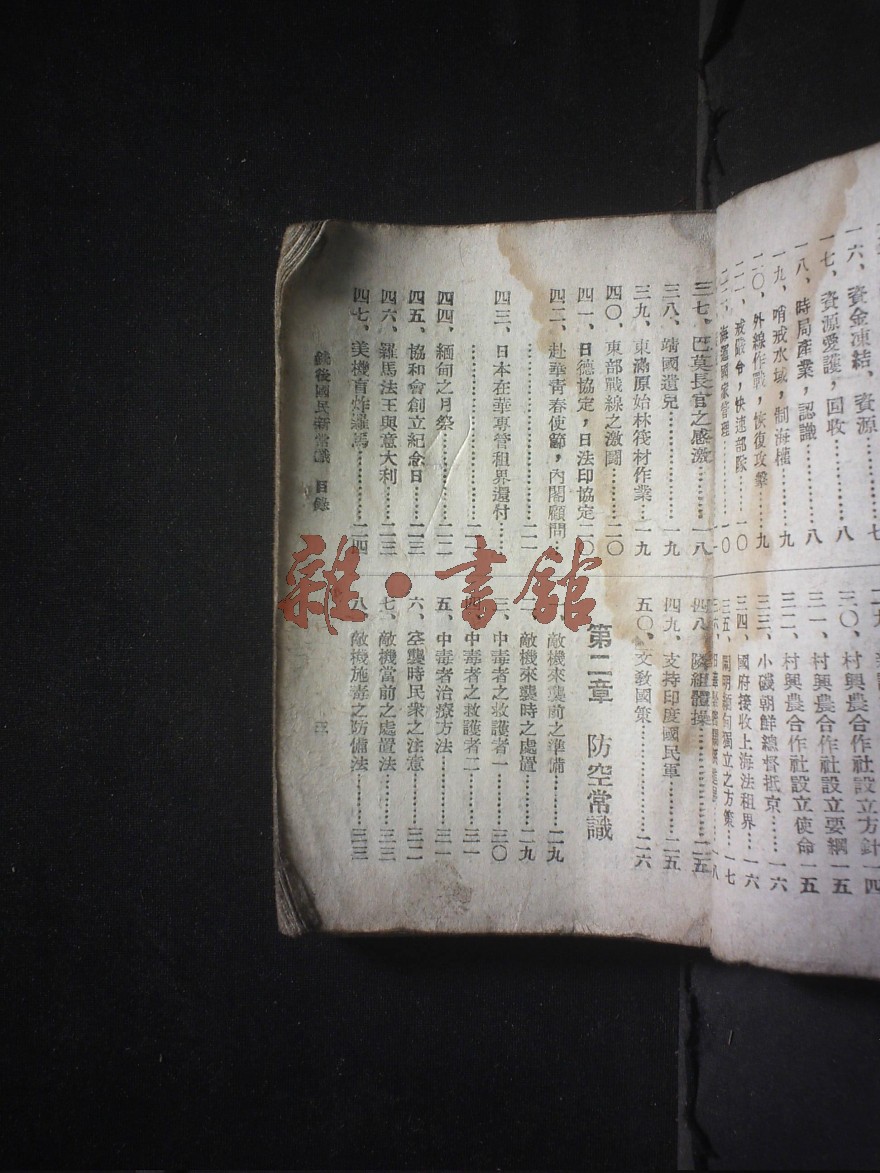 一六、資金凍結、資源
一七、資源愛護，回收……八
一八、時局產業，認識……八
一九、哨戒水域，制海權……九
二〇、外線作戰，恢復攻擊……九
二一、戒嚴令，快速部隊……一〇
一〇
三〇、村興農合作社設立方針
一四
三一、村興農合作社設立要綱
一五
三二、村興農合作社設立使命
一五
三三、小磯朝鮮總督抵京……一六
三四、國府接收上海法租界……一六
三五、闡明緬甸獨立之方策……一七
三七、巴莫長官之感激……一八
三八、靖國遺兒……一九
三九、東滿原始林筏材作業……一九
四〇、東部戰線之激鬪……二〇
四一、日德協定，日法印協定……二〇
四二、赴華青春使節，內閣顧問……
……二一
四三、日本在華專管租界還付……
四四、緬甸之月祭……二二
四五、協和會創立紀念日……二三
四六、羅馬法王與意大利……二三
四七、美機盲炸羅馬……二四
四八、隣組體操……二五
四九、支持印度國民軍……二五
五〇、文敎國策……二六
第二章 防空常識
敵機來襲前之準備……二九
二、敵機來襲時之處置……二九
三、中毒者之救護者一……三〇
四、中毒者之救護者二……三一
五、中毒者治療方法……三一
六、空襲時民衆之注意……三二
七、敵機當前之處置法……三三
八、敵機施毒之防備法……三三
銃後國民新常識 目錄
三
雜·書館